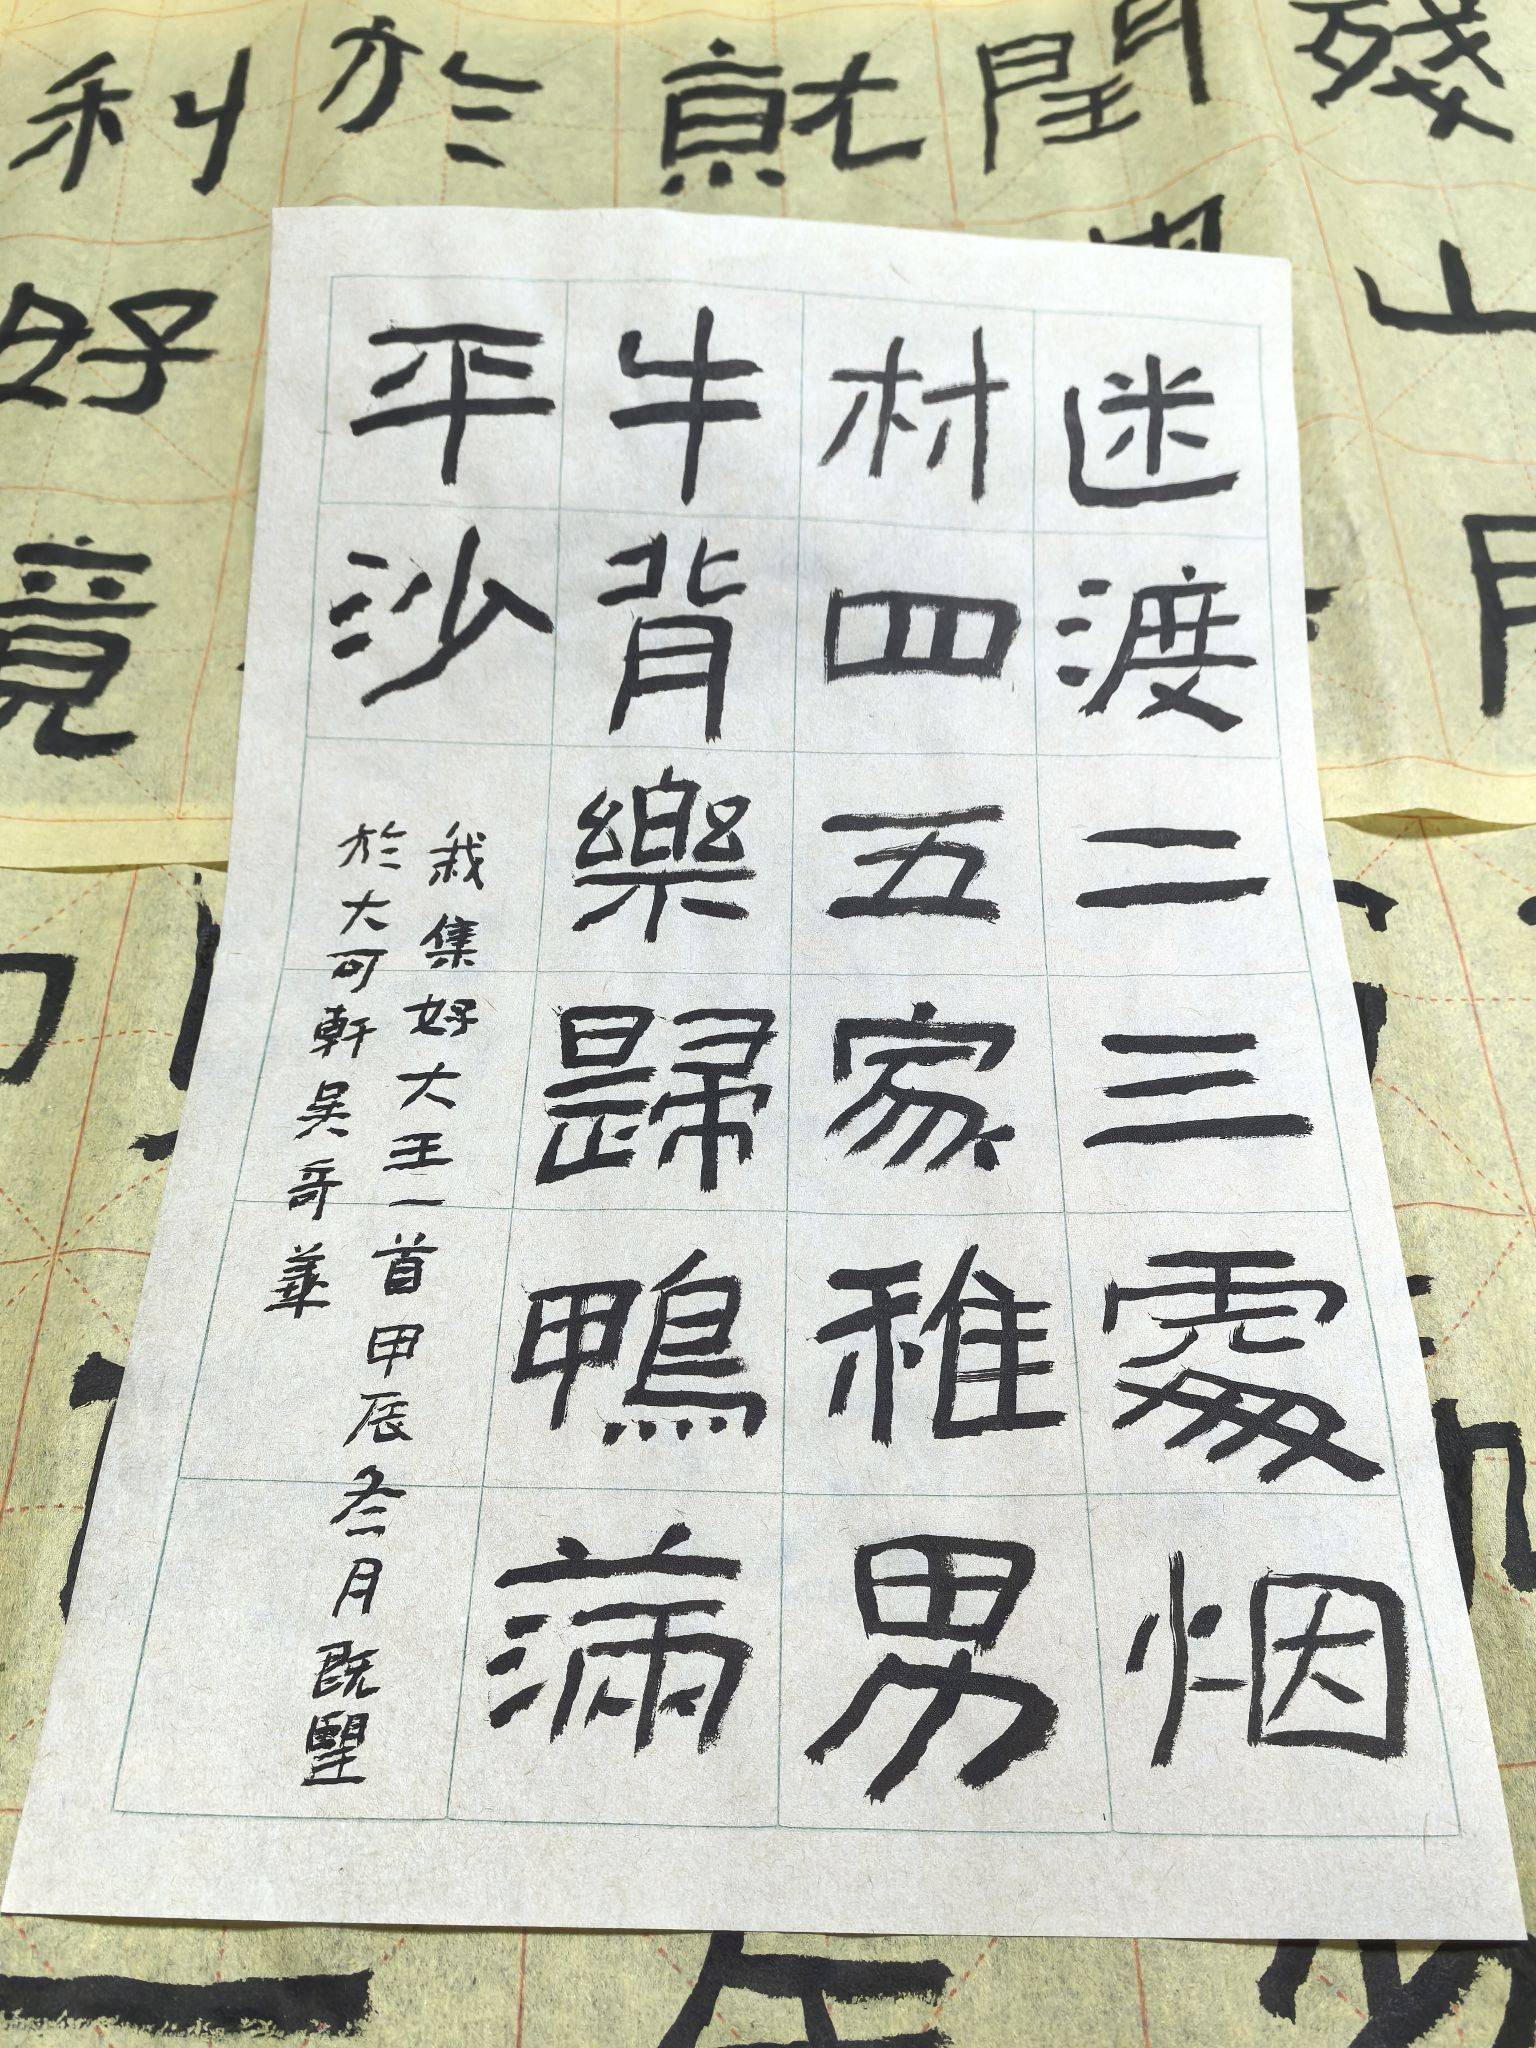 迷渡二三處烟
村四五家稚男
牛背樂歸鴨滿
平沙
我集好大王一首甲辰冬月既望
於大可軒吴奇華
利於就閏
殘
好
山
竟
月